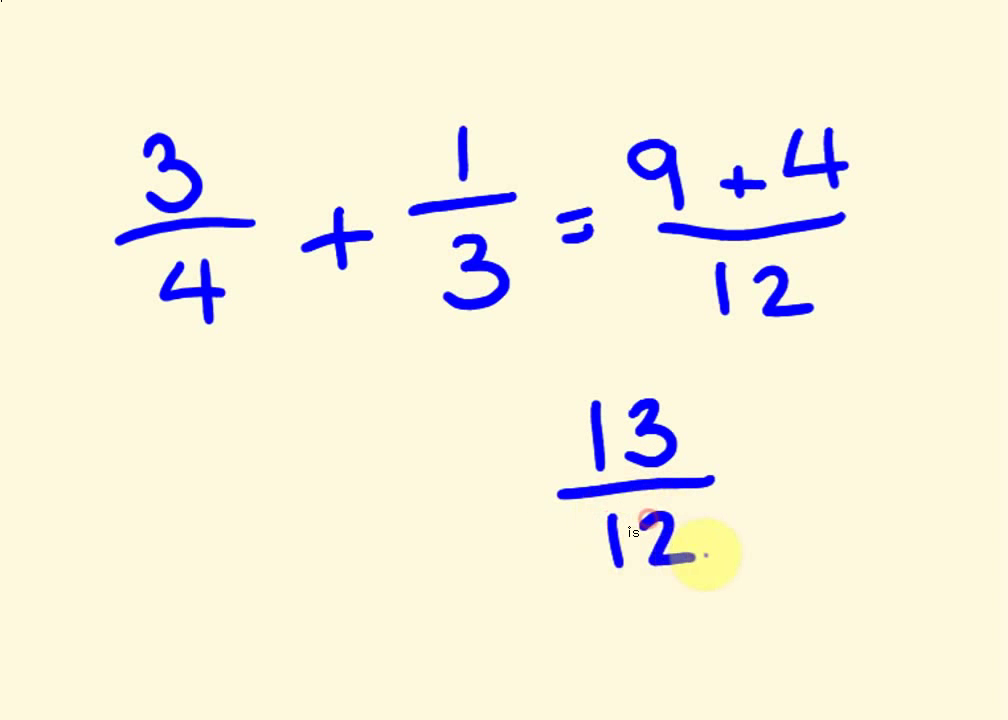 3/4 + 1/3 = 9 + 4/12
13/12
is